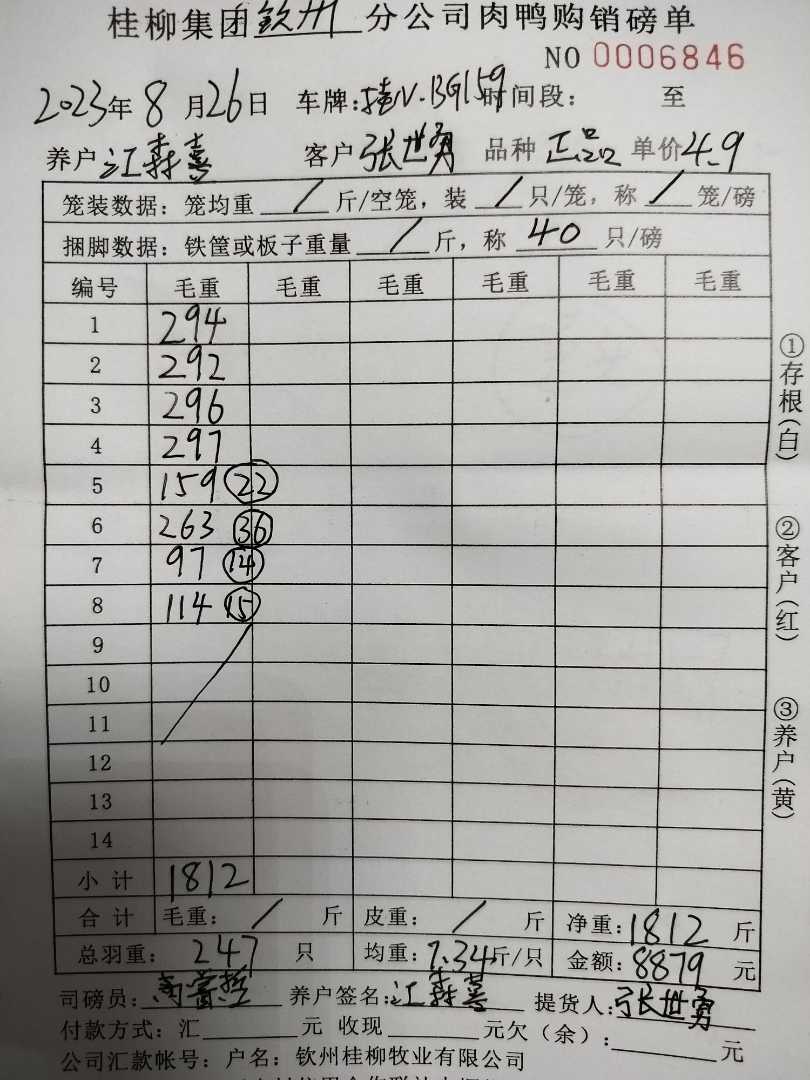 桂柳集团钦州分公司肉鸭购销磅单
NO 0006846
2023年8月26日 车牌:桂N.BG159 时间段: 至
养户 江森喜 客户 张世勇 品种 正品 单价4.9
笼装数据：笼均重 / 斤/空笼，装 / 只/笼，称 / 笼/磅
捆脚数据：铁筐或板子重量 / 斤，称 40 只/磅
编号 毛重 毛重 毛重 毛重 毛重 毛重
1 294
2 292
3 296
4 297
5 159 22
6 263 36
7 97 14
8 114 15
9
10
11
12
13
14
小计 1812
合计 毛重： / 斤 皮重： / 斤 净重：1812 斤
总羽重： 247 只 均重：7.34斤/只 金额：8879 元
司磅员： 养户签名：江森喜 提货人：张世勇
付款方式：汇 元 收现 元欠（余）： 元
公司汇款帐号：户名：钦州桂柳牧业有限公司
①存根(白)
②客户(红)
③养户(黄)